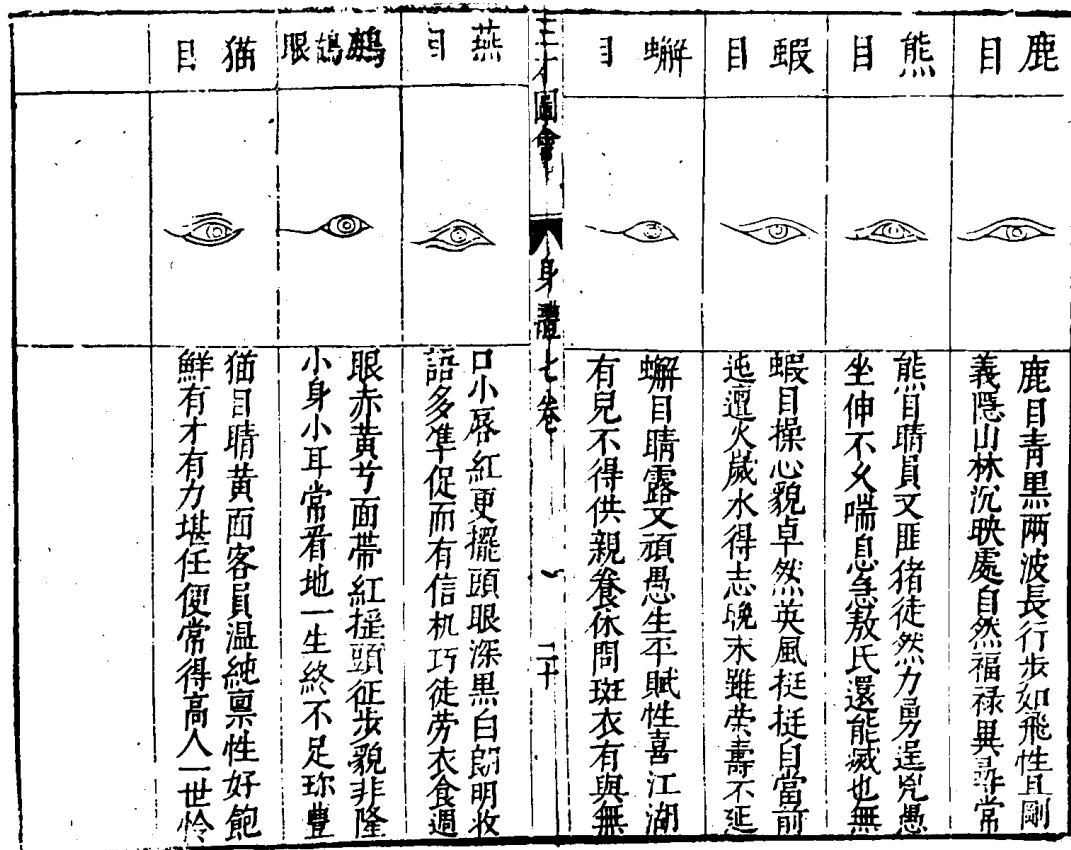 鹿目
鹿目青黒两波長行步如飛性且剛
義隱山林沉映處自然福禄異尋常
熊目
熊目睛員又匪猪徒然力勇逞兇愚
坐伸不久喘息急敖氏還能滅也無
蝦目
蝦目操心貌卓然英風挺挺自當前
迍邅火歲水得志晚末雖荣壽不延
蠏目
蠏目睛露又頑愚生平賦性喜江湖
有兒不得供親養休問斑衣有與無
三才圖會
身體七卷
二十
燕目
口小唇紅更擺頭眼深黒白朗明收
語多準促而有信机巧徒劳衣食週
鷓鴣眼
眼赤黄兮面帶紅揺頭征步貌非隆
小身小耳常看地一生終不足珎豐
猫目
猫目睛黄面客員温純禀性好飽
鮮有才有力堪任使常得高人一世怜